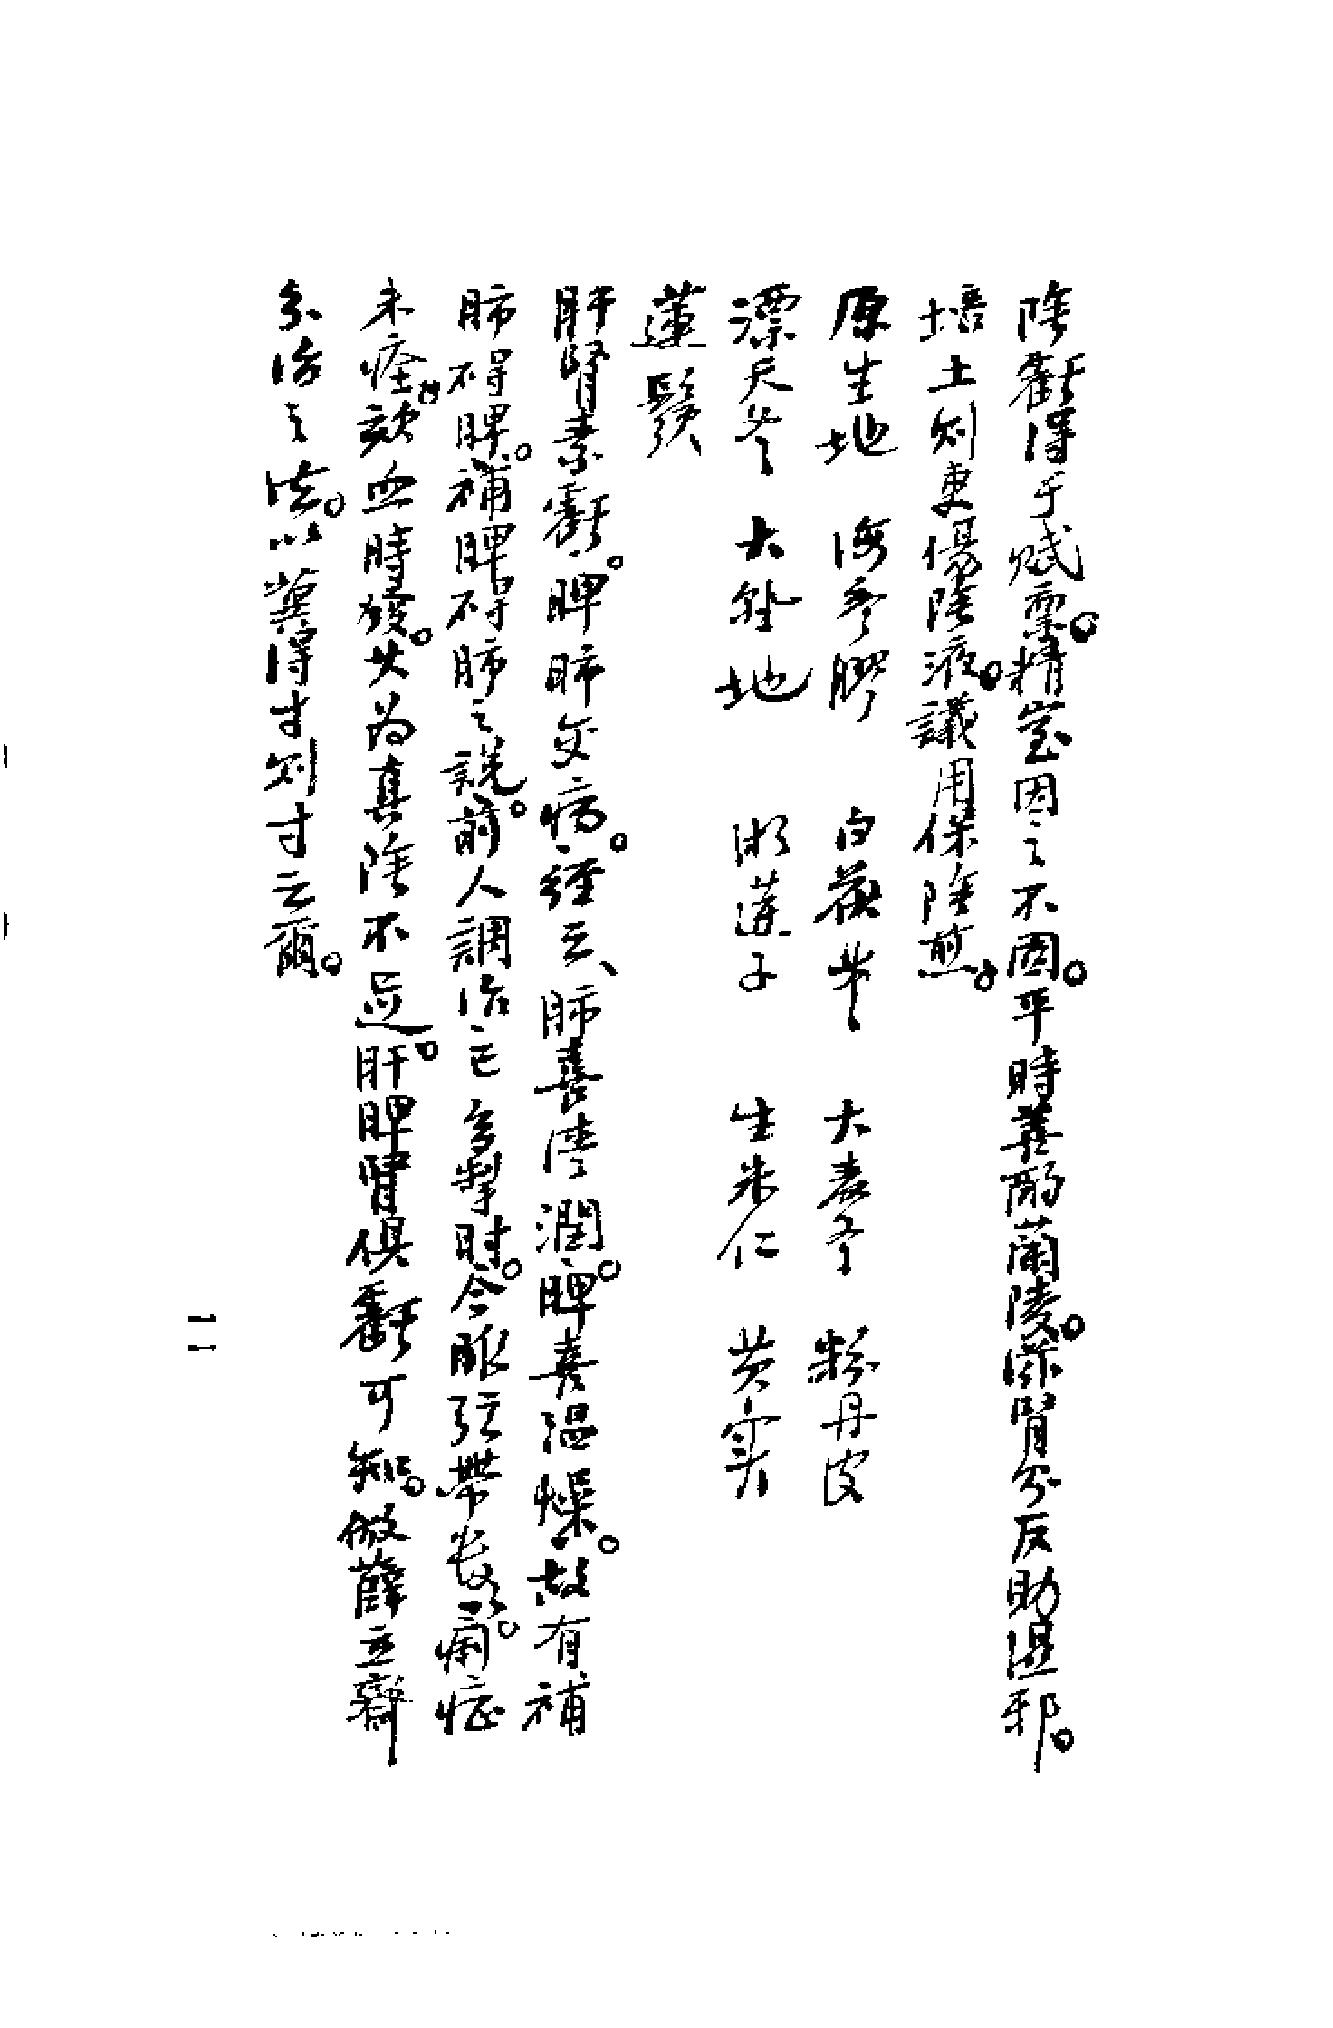 陰虧得于賦稟。精室因之不固。平時喜酌蘭陵。滋腎分反助濕邪。
培土則更傷陰液。議用保陰煎。
原生地 海參膠 白薇 大麥冬 粉丹皮
漂天冬 大熟地 湘蓮子 生米仁 芡實
蓮鬚
肝腎素虧。脾肺交病。經云、肺喜清潤。脾喜溫燥。故有補
肺碍脾。補脾碍肺之說。前人調治已多掣肘。今脈弦帶數。痛症
未痊。欬血時發。其為真陰不足。肝脾腎俱虧可知。倣薛立齋
分治之法。以冀得寸則寸云爾。
一一